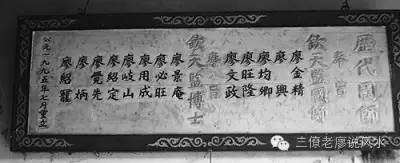 歷代國師
奉旨
欽天監國師
廖金精
廖興
廖均卿
廖旺隆
廖文政
奉旨
欽天監博士
廖景庵
廖必旺
廖用成
廖岐山
廖紹定
廖覺先
廖炳
廖紹寵
公元一九九五年七月重立
三僚老廖说风水